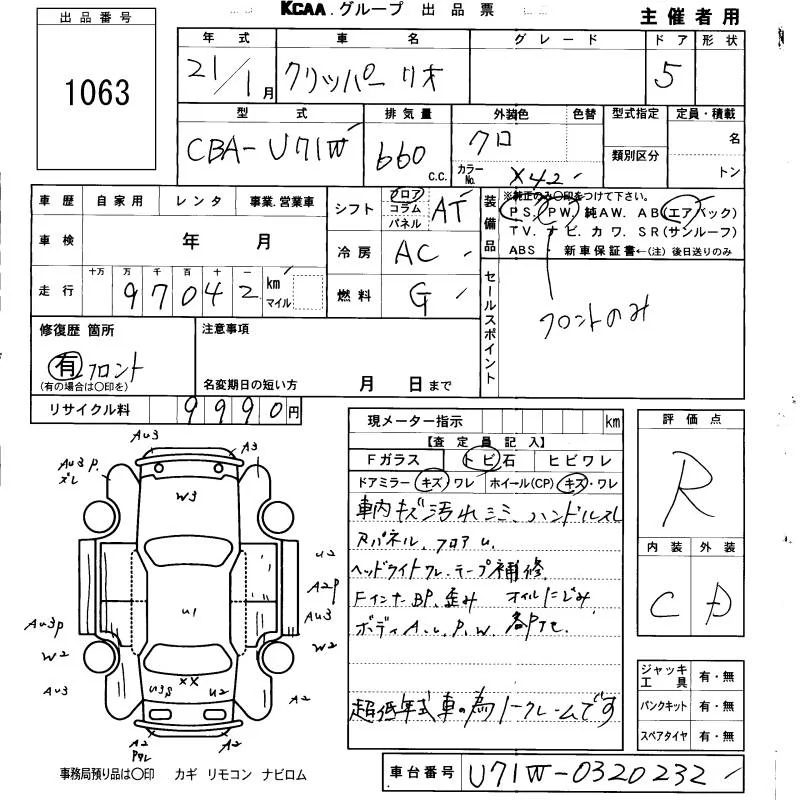 KCAA.グループ 出品票
主催者用
出品番号
1063
年式 車名 グレード ドア 形状
21/1月 クリッパーリオ 5
型式 排気量 外装色 色替 型式指定 定員・積載
CBA-U71W 660 c.c. クロ カラーNo. X42 類別区分 名 トン
車歴 自家用 レンタ 事業.営業車
車検 年 月
走行 十万 万 千 百 十 一 km マイル
97042
シフト フロア コラム パネル AT
冷房 AC
燃料 G
装備品
※純正のみ〇印をつけて下さい。
PS. PW. 純AW. AB(エアバック)
TV. ナビ. カワ. SR(サンルーフ)
ABS 新車保証書←(注) 後日送りのみ
セールスポイント
フロントのみ
修復歴 箇所
有 フロント
(有の場合は〇印を)
注意事項
名変期日の短い方 月 日まで
リサイクル料 9990円
現メーター指示 km
【査定員記入】
Fガラス トビ石 ヒビワレ
ドアミラー キズ ワレ ホイール(CP) キズ・ワレ
車内キズ汚れシミ、ハンドルスレ
Rパネル、フロアU
ヘッドライトワレ、テープ補修
FインナーBP、歪み オイルにじみ
ボディA.U.P.W. 各Pイセ
超低年式車の為ノークレームです
評価点
R
内装 外装
C D
ジャッキ工具 有・無
パンクキット 有・無
スペアタイヤ 有・無
AU3 A3
AU3 P.
ズレ
W3
U2
A2P
U1
AU3
AU3P
W2 W2
AU3 U3S XX U2 A2
A2 A2
Pワレ
事務局預り品は〇印 カギ リモコン ナビロム
車台番号 U71W-0320232